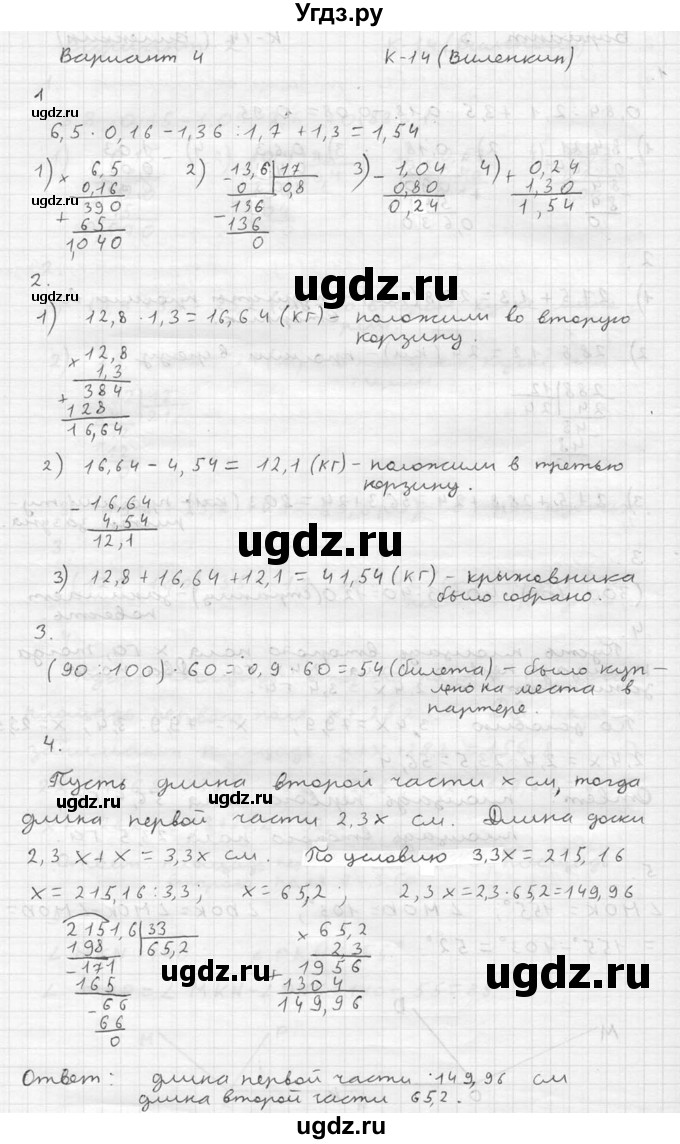 Угдз.ру
Вариант 4 К-14 (Виленкин)
1
ugdz.ru
6,5 · 0,16 - 1,36 : 1,7 + 1,3 = 1,54
1) × 6,5 2) - 13,6 | 17 3) - 1,04 4) + 0,24
ugdz.ru 0,16 0 0,8 0,80 1,30
+ 390 - 136 0,24 1,54
65 136
1,040 0
ugdz.ru
2.
ugdz.ru
1) 12,8 · 1,3 = 16,64 (кг) - положили во вторую
корзину.
× 12,8
1,3
+ 384
128
16,64
2) 16,64 - 4,54 = 12,1 (кг) - положили в третью
корзину.
- 16,64
4,54
12,1
ugdz.ru
3) 12,8 + 16,64 + 12,1 = 41,54 (кг) - крыжовника
было собрано.
3.
(90 : 100) · 60 = 0,9 · 60 = 54 (билета) - было куп-
лено на места в
партере.
4.
Пусть длина второй части x см, тогда
ugdz.ru ugdz.ru
длина первой части 2,3x см. Длина доски
2,3x + x = 3,3x см. По условию 3,3x = 215,16
x = 215,16 : 3,3; x = 65,2; 2,3x = 2,3 · 65,2 = 149,96
2151,6 | 33 × 65,2
198 65,2 2,3
- 171 + 1956
165 1304
- 66 149,96
66
0
ugdz.ru
Ответ: длина первой части 149,96 см
длина второй части 65,2.